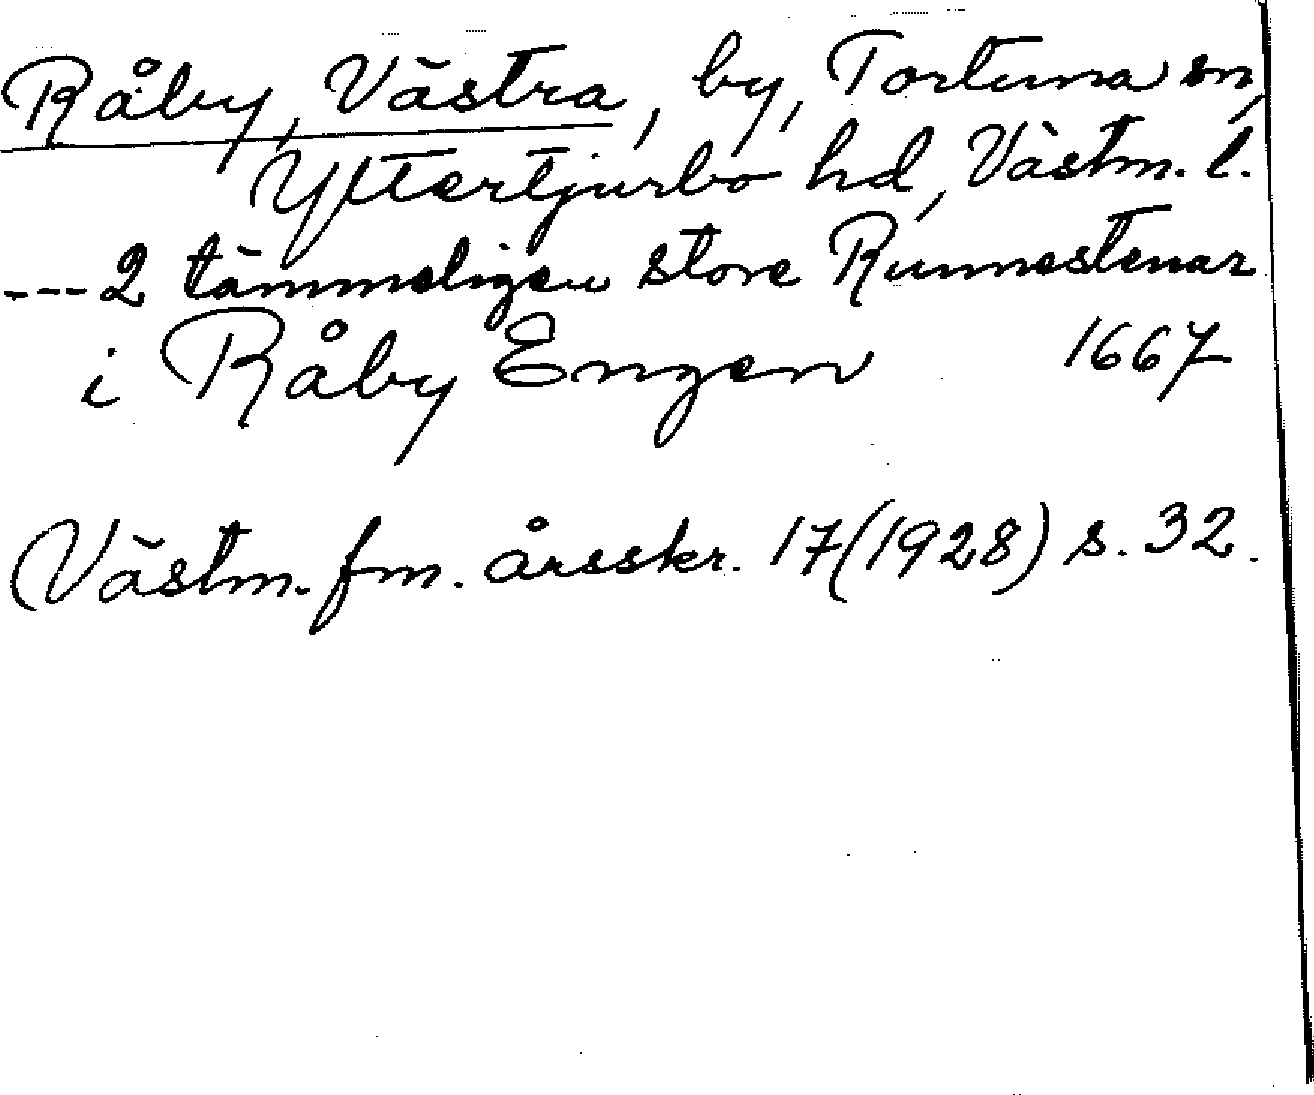 Råby, Västra, by, Tortuna sn,
Yttertjurbo hd, Västm. l.
--- 2 tämmeligen store Runnestenar
i Råby Engen 1667
Västm. fm. årsskr. 17 (1928) s. 32.